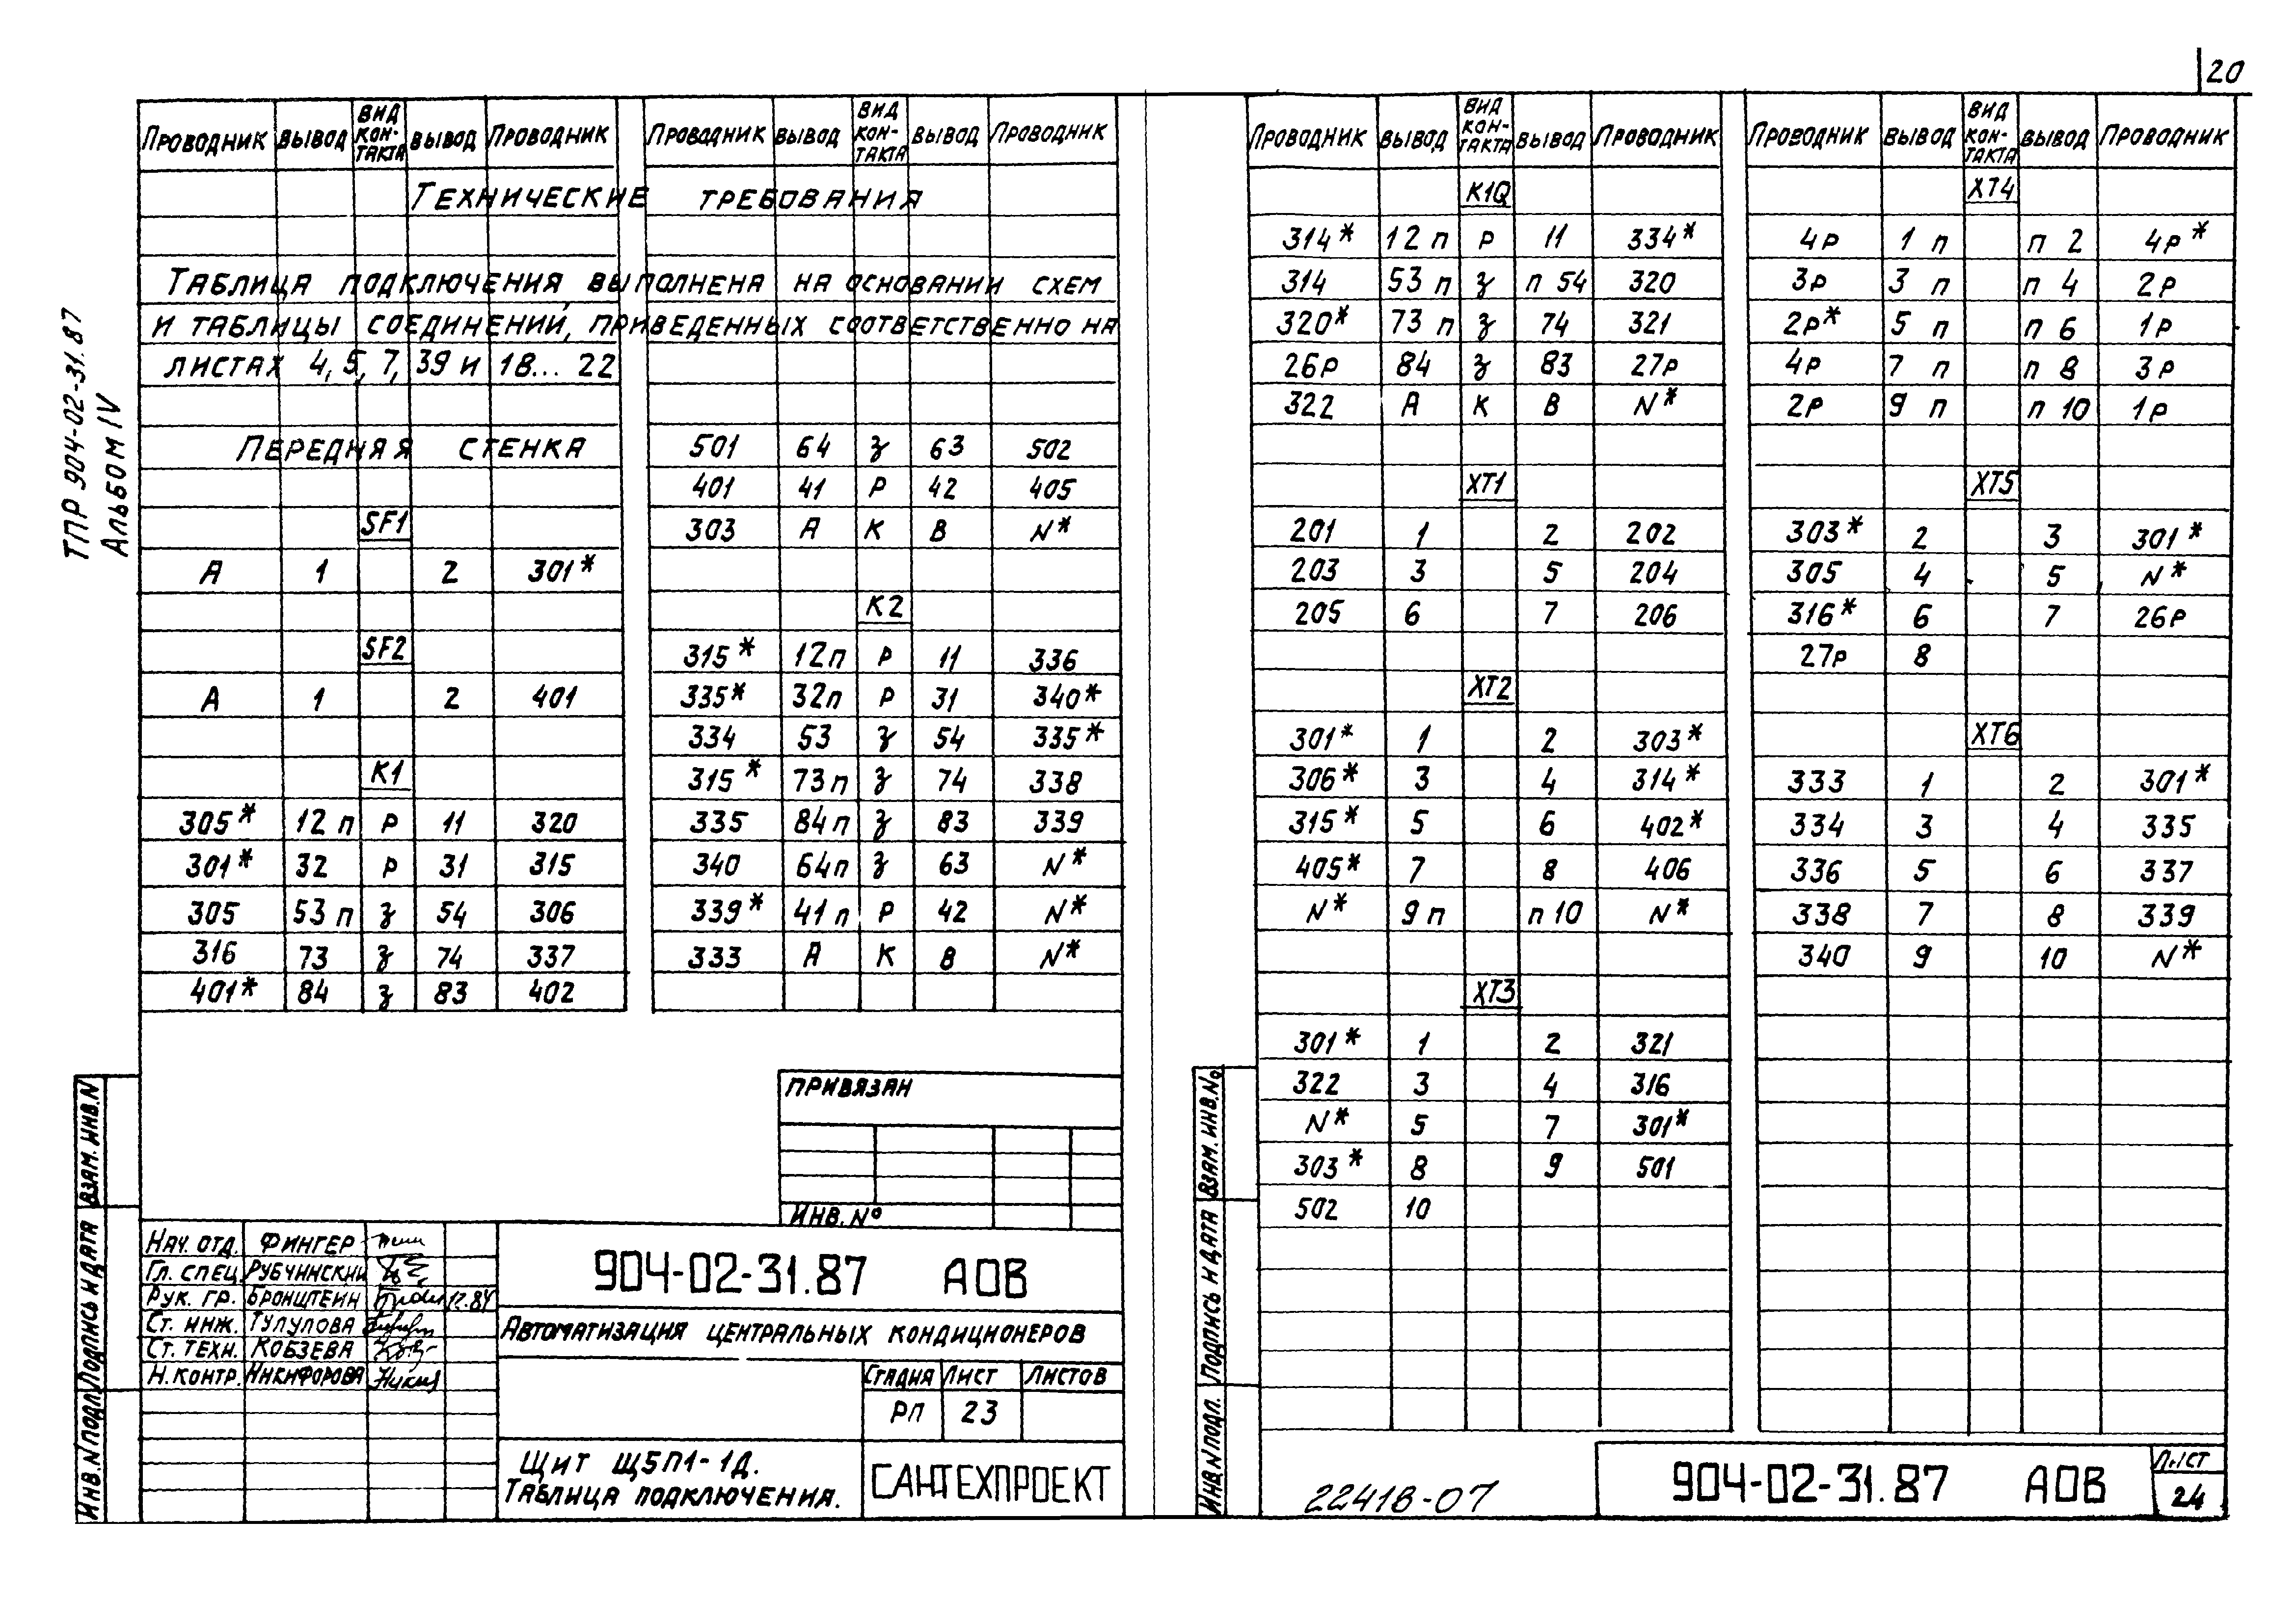 20
ТПР 904-02-31.87
Альбом IV
Проводник Вывод Вид контакта Вывод Проводник
Технические требования
Таблица подключения выполнена на основании схем
и таблицы соединений, приведенных соответственно на
листах 4, 5, 7, 39 и 18... 22
Передняя стенка
SF1
А 1 2 301*
SF2
А 1 2 401
К1
305* 12 п Р 11 320
301* 32 Р 31 315
305 53 п з 54 306
316 73 з 74 337
401* 84 з 83 402
Проводник Вывод Вид контакта Вывод Проводник
501 64 з 63 502
401 41 Р 42 405
303 А К В N*
К2
315* 12п Р 11 336
335* 32п Р 31 340*
334 53 з 54 335*
315* 73п з 74 338
335 84п з 83 339
340 64п з 63 N*
339* 41п Р 42 N*
333 А К В N*
Привязан
Инв. №
Нач. отд. Фингер
Гл. спец. Рубчинский
Рук. гр. Бронштейн 12.84
Ст. инж. Тулулова
Ст. техн. Кобзева
Н. контр. Никифорова
904-02-31.87 АОВ
Автоматизация центральных кондиционеров
Стадия Лист Листов
РП 23
Щит Щ5П1-1Д.
Таблица подключения.
САНТЕХПРОЕКТ
Инв. N подл. Подпись и дата Взам. инв. N
Проводник Вывод Вид контакта Вывод Проводник
К1Q
314* 12 п Р 11 334*
314 53 п з п 54 320
320* 73 п з 74 321
26Р 84 з 83 27Р
322 А К В N*
ХТ1
201 1 2 202
203 3 5 204
205 6 7 206
ХТ2
301* 1 2 303*
306* 3 4 314*
315* 5 6 402*
405* 7 8 406
N* 9 п п 10 N*
ХТ3
301* 1 2 321
322 3 4 316
N* 5 7 301*
303* 8 9 501
502 10
Проводник Вывод Вид контакта Вывод Проводник
ХТ4
4Р 1 п п 2 4Р*
3Р 3 п п 4 2Р
2Р* 5 п п 6 1Р
4Р 7 п п 8 3Р
2Р 9 п п 10 1Р
ХТ5
303* 2 3 301*
305 4 5 N*
316* 6 7 26Р
27Р 8
ХТ6
333 1 2 301*
334 3 4 335
336 5 6 337
338 7 8 339
340 9 10 N*
Инв. N подл. Подпись и дата Взам. инв. №
22418-07
904-02-31.87 АОВ
Лист
24